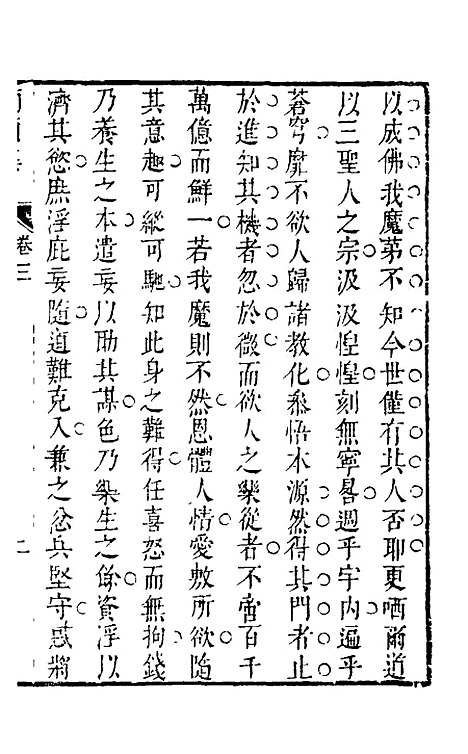 以成佛我魔苐不知今世僅有其人否耶更哂爾道
以三聖人之宗汲汲惶惶刻無寧晷週乎宇内遍乎
蒼穹靡不欲人歸諸教化悉悟本源然得其門者止
於進知其機者忽於微而欲人之樂從者不啻百千
萬億而鮮一若我魔則不然恩體人情愛敷所欲隨
其意趣可縱可馳知此身之難得任喜怒而無拘錢
乃養生之本遣妄以助其謀色乃染生之餘資浮以
濟其慾庶浮庇妄隨道難克入兼之忿兵堅守惑將
卷三
二